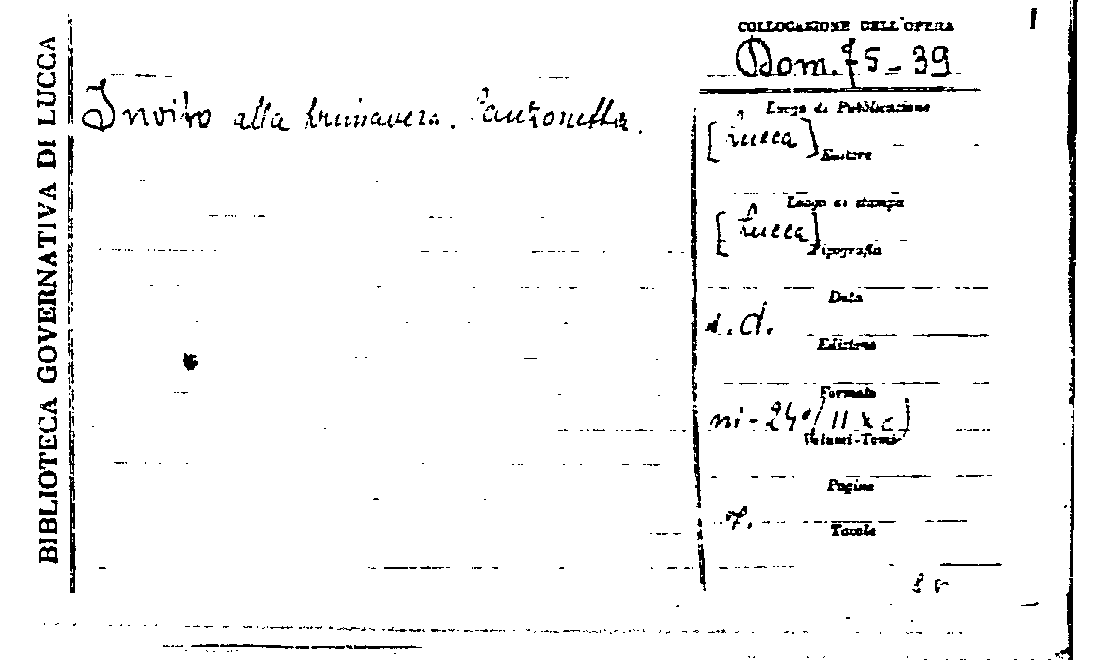 BIBLIOTECA GOVERNATIVA DI LUCCA
Invito alla primavera. Canzonetta.
COLLOCAZIONE DELL'OPERA
Dom. 75-39
Luogo di Pubblicazione
[Lucca]
Editore
Luogo di stampa
[Lucca]
Tipografia
Data
s.d.
Edizione
Formato
in-24°
Volumi-Tomi
Pagine
7.
Tavole